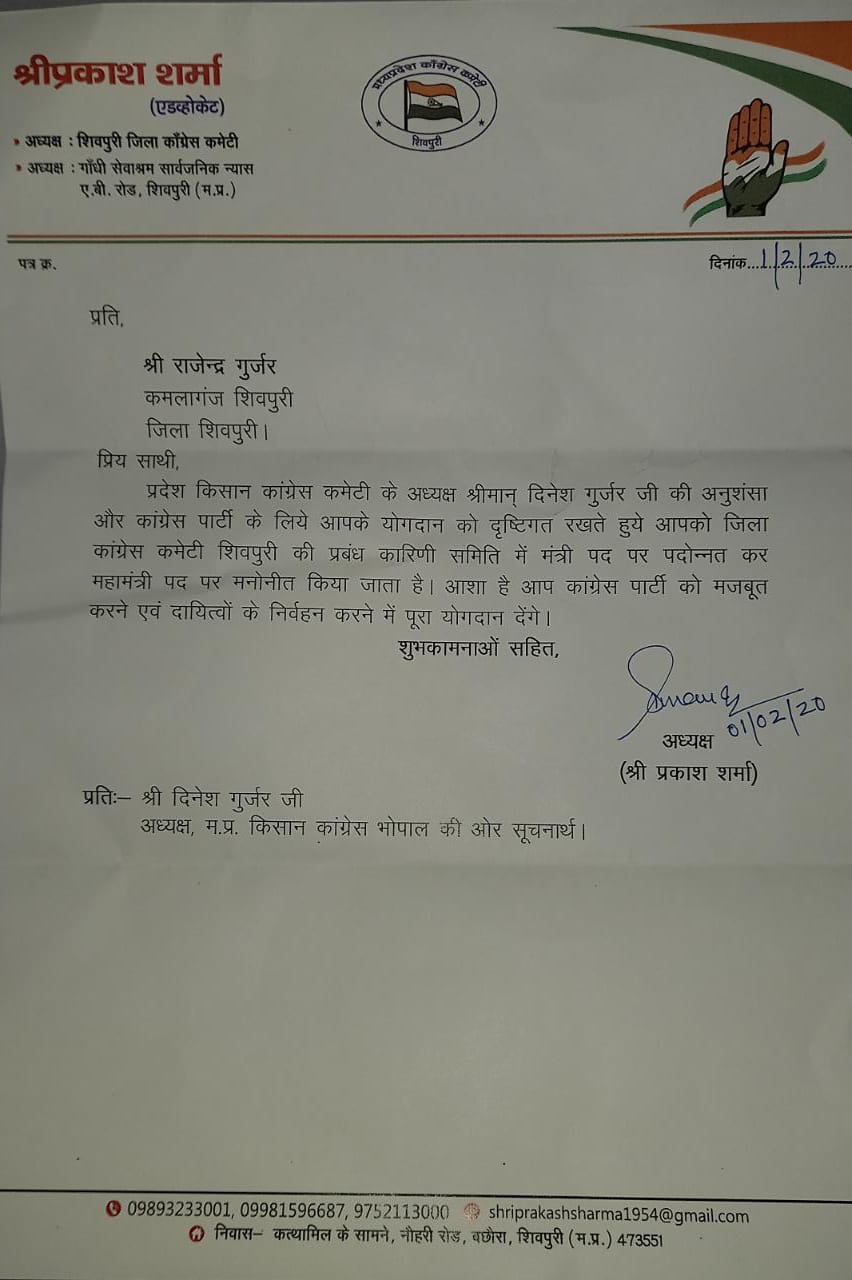 श्रीप्रकाश शर्मा
(एडव्होकेट)
अध्यक्ष : शिवपुरी जिला काँग्रेस कमेटी
अध्यक्ष : गाँधी सेवाश्रम सार्वजनिक न्यास
ए.बी. रोड, शिवपुरी (म.प्र.)
मध्यप्रदेश काँग्रेस कमेटी
शिवपुरी
पत्र क्र.
दिनांक...1/2/20
प्रति,
श्री राजेन्द्र गुर्जर
कमलागंज शिवपुरी
जिला शिवपुरी।
प्रिय साथी,
प्रदेश किसान कांग्रेस कमेटी के अध्यक्ष श्रीमान् दिनेश गुर्जर जी की अनुशंसा
और कांग्रेस पार्टी के लिये आपके योगदान को दृष्टिगत रखते हुये आपको जिला
कांग्रेस कमेटी शिवपुरी की प्रबंध कारिणी समिति में मंत्री पद पर पदोन्नत कर
महामंत्री पद पर मनोनीत किया जाता है। आशा है आप कांग्रेस पार्टी को मजबूत
करने एवं दायित्वों के निर्वहन करने में पूरा योगदान देंगे।
शुभकामनाओं सहित,
01/02/20
अध्यक्ष
(श्री प्रकाश शर्मा)
प्रतिः– श्री दिनेश गुर्जर जी
अध्यक्ष, म.प्र. किसान कांग्रेस भोपाल की ओर सूचनार्थ।
09893233001, 09981596687, 9752113000 shriprakashsharma1954@gmail.com
निवास– कत्थामिल के सामने, नौहरी रोड, बछौरा, शिवपुरी (म.प्र.) 473551